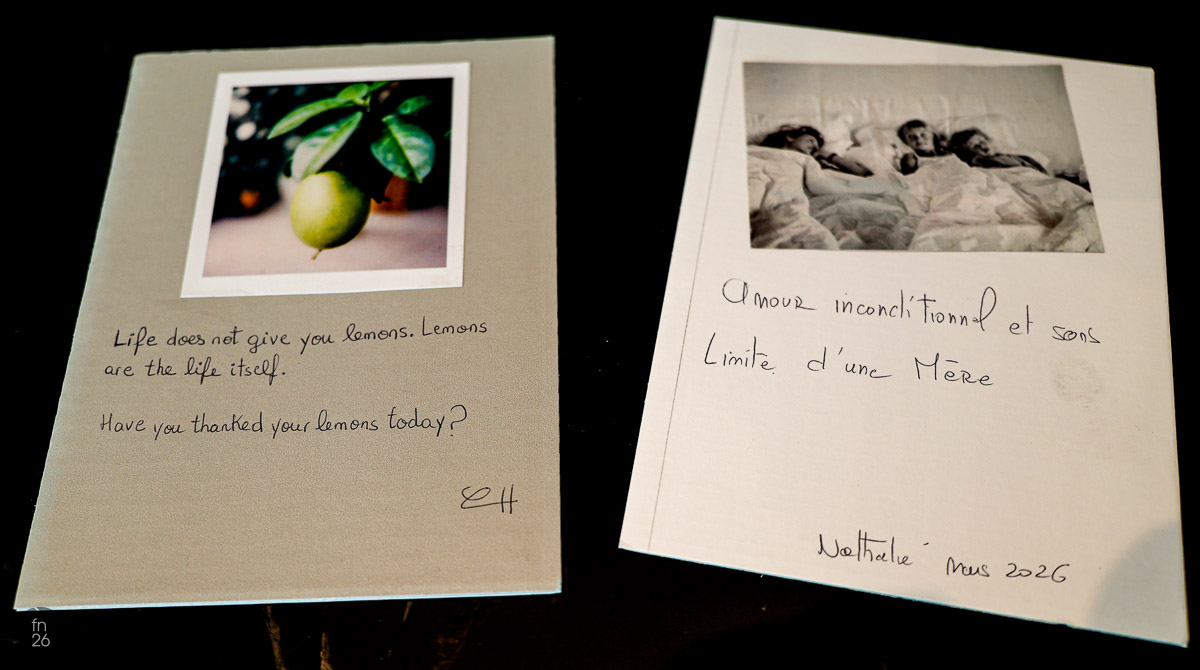 Life does not give you lemons. Lemons
are the life itself.
Have you thanked your lemons today?
CH
Amour inconditionnel et sans
Limite d'une Mère
Nathalie mars 2026
fn
26